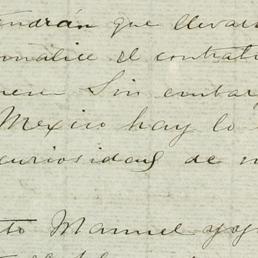 endrán que llevar
rmalice el contrat
nere Sin embar
Mexico hay lo
curiosidad de
to Manuel y yo